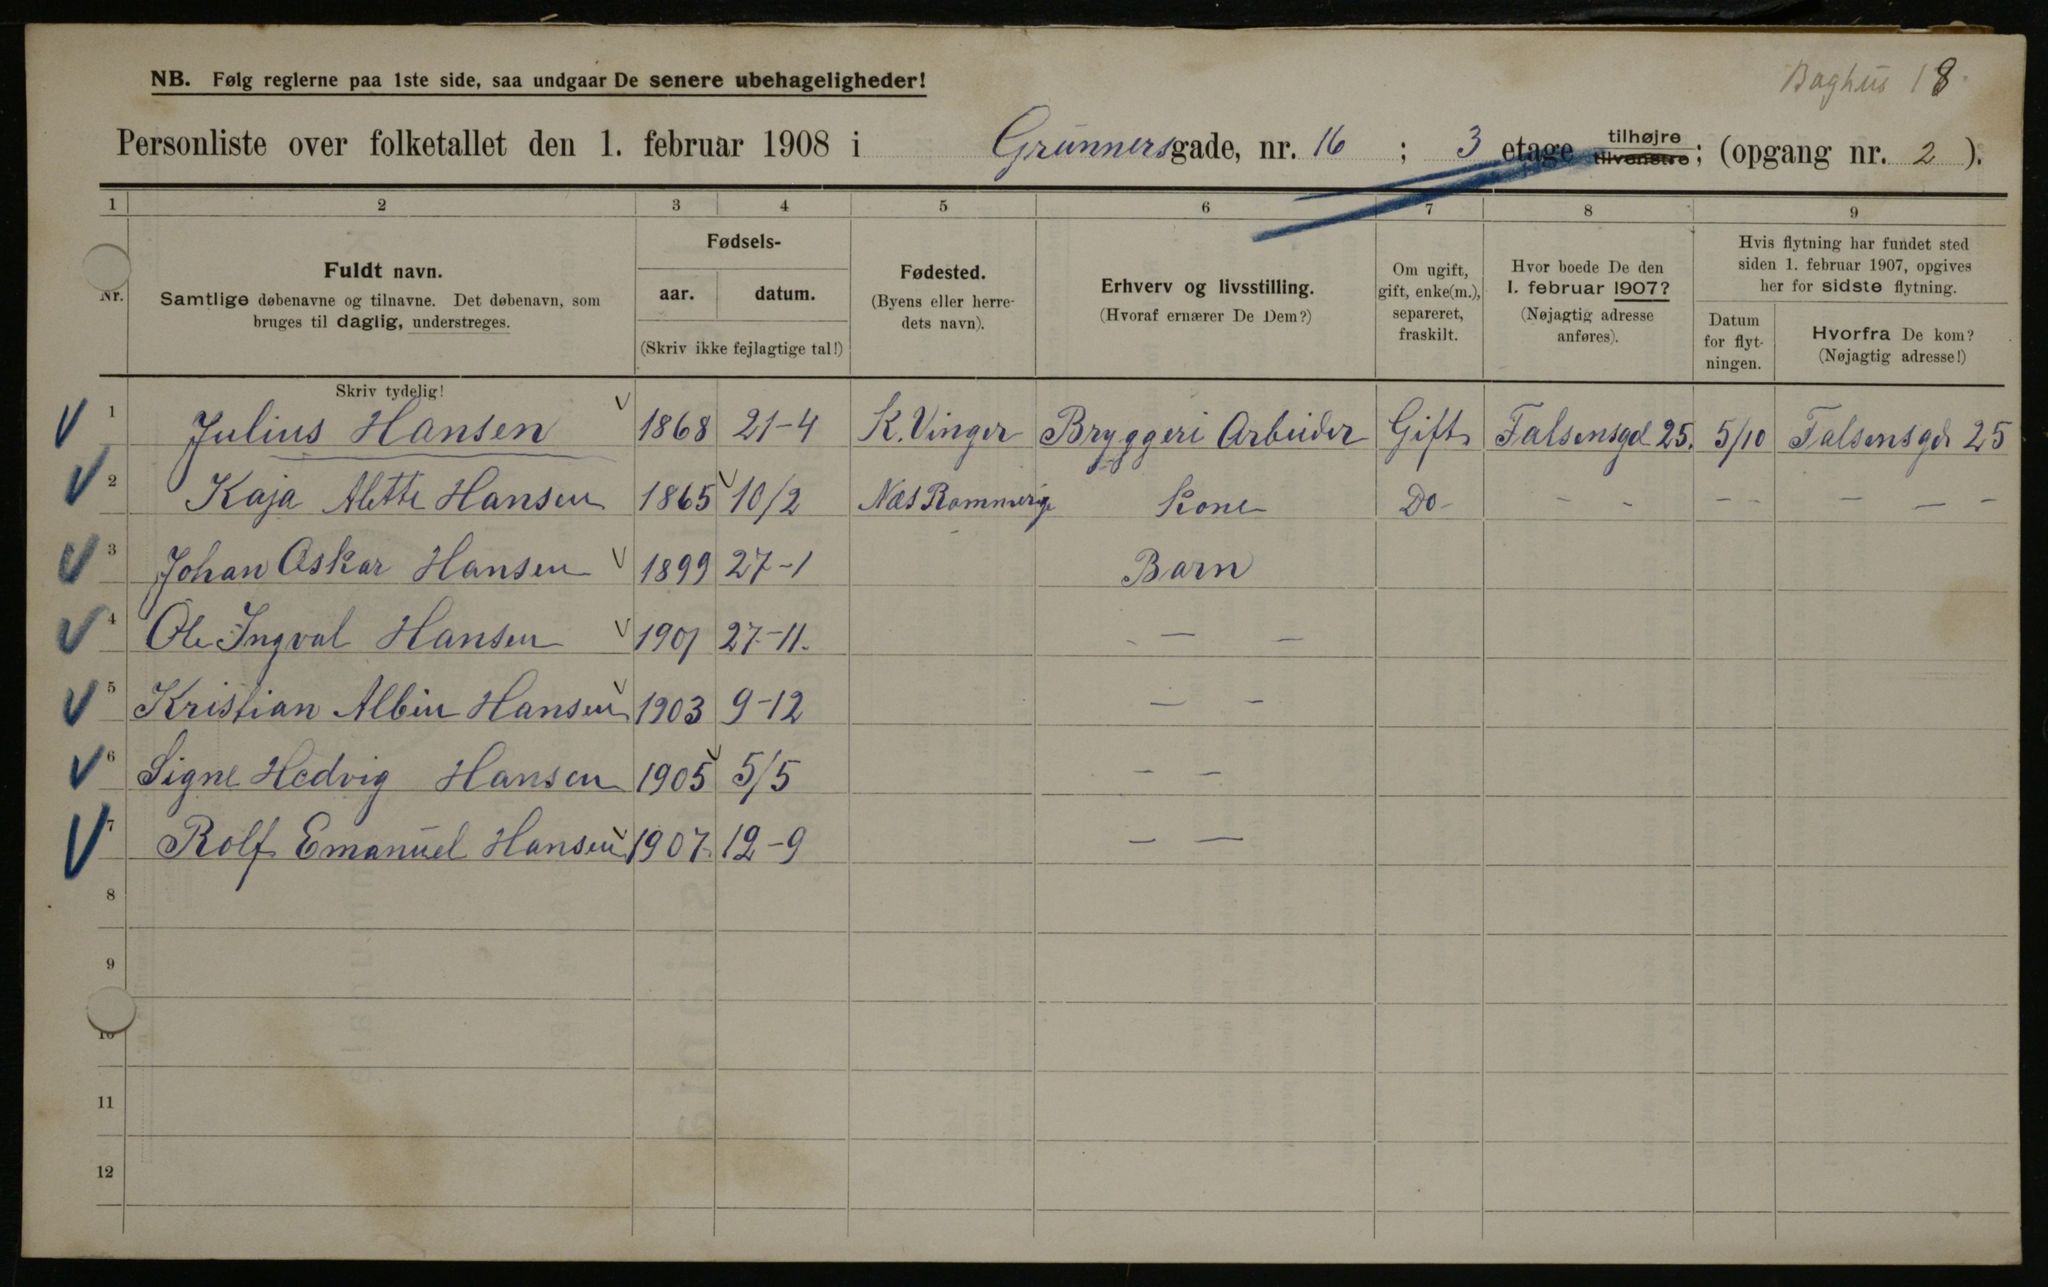 Baghus 18.
NB. Følg reglerne paa 1ste side, saa undgaar De senere ubehageligheder!
Personliste over folketallet den 1. februar 1908 i Grünnersgade, nr. 16 ; 3 etage tilhøjre tilvenstre; (opgang nr. 2 ).
1 2 3 4 5 6 7 8 9
Nr.
Fuldt navn.
Samtlige døbenavne og tilnavne. Det døbenavn, som
bruges til daglig, understreges.
Skriv tydelig!
Fødsels-
aar. datum.
(Skriv ikke fejlagtige tal!)
Fødested.
(Byens eller herre-
dets navn).
Erhverv og livsstilling.
(Hvoraf ernærer De Dem?)
Om ugift,
gift, enke(m.),
separeret,
fraskilt.
Hvor boede De den
1. februar 1907?
(Nøjagtig adresse
anføres).
Hvis flytning har fundet sted
siden 1. februar 1907, opgives
her for sidste flytning.
Datum
for flyt-
ningen.
Hvorfra De kom?
(Nøjagtig adresse!)
1 Julius Hansen 1868 21-4 K. Vinger Bryggeri Arbeider Gift Falsensgd 25. 5/10 Falsensgd 25
2 Kaja Alette Hansen 1865 10/2 Næs Rommerige Kone Do - - - - - - - -
3 Johan Oskar Hansen 1899 27-1 Barn
4 Ole Ingval Hansen 1901 27-11. - — -
5 Kristian Albin Hansen 1903 9-12 — -
6 Signe Hedvig Hansen 1905 5/5 - -
7 Rolf Emanuel Hansen 1907 12-9 - —
8
9
10
11
12